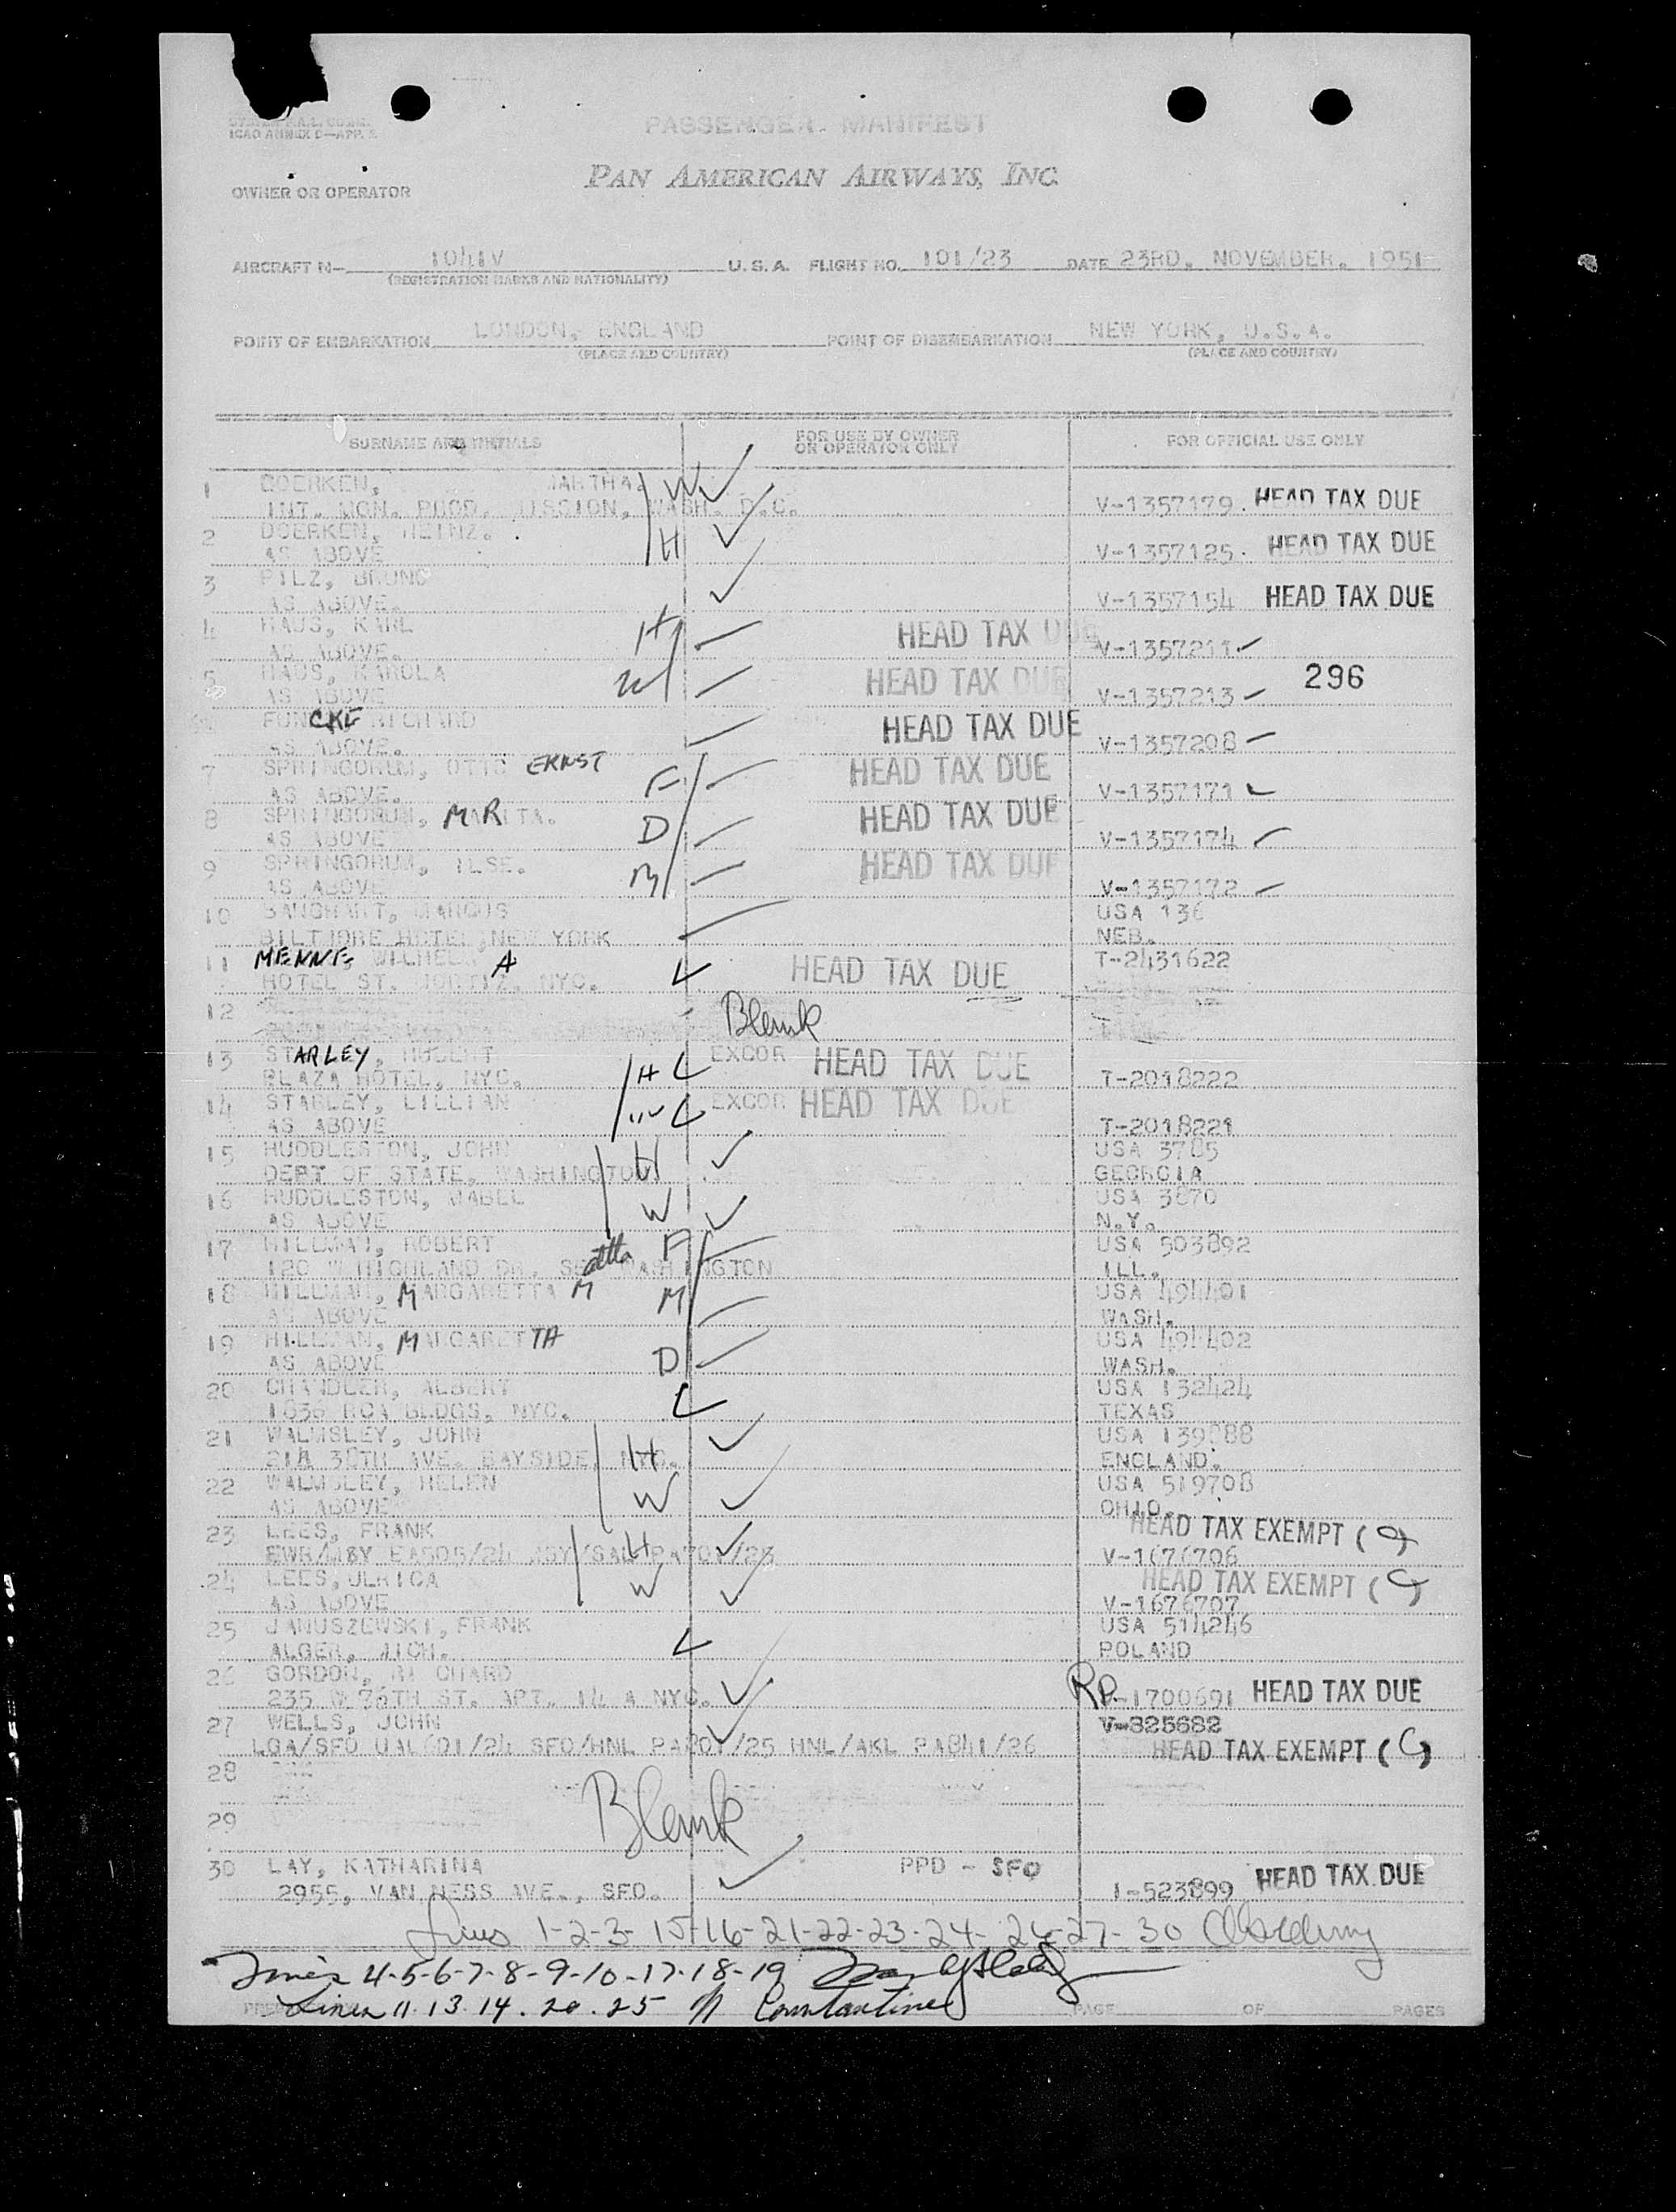 ICAO ANNEX 9—APP.
PASSENGER MANIFEST
PAN AMERICAN AIRWAYS, INC.
OWNER OR OPERATOR
AIRCRAFT N— 1041V U.S.A. FLIGHT NO. 101/23 DATE 23RD. NOVEMBER. 1951
(REGISTRATION MARKS AND NATIONALITY)
POINT OF EMBARKATION LONDON, ENGLAND POINT OF DISEMBARKATION NEW YORK, U.S.A.
(PLACE AND COUNTRY) (PLACE AND COUNTRY)
SURNAME AND INITIALS FOR USE BY OWNER OR OPERATOR ONLY FOR OFFICIAL USE ONLY
1 DOERKEN, MARTHA. W
INT. MON. PROD. MISSION, WASH. D.C. V-1357179. HEAD TAX DUE
2 DOERKEN, HEINZ. H
AS ABOVE V-1357125. HEAD TAX DUE
3 PILZ, BRUNO
AS ABOVE. V-1357154 HEAD TAX DUE
4 HAUS, KARL H HEAD TAX DUE
AS ABOVE. V-1357211
5 HAUS, KAROLA W HEAD TAX DUE 296
AS ABOVE V-1357213
FUNCKE RICHARD HEAD TAX DUE
AS ABOVE. V-1357208
7 SPRINGORUM, OTTO ERNST F HEAD TAX DUE
AS ABOVE. V-1357171
8 SPRINGORUM, MARITA. D HEAD TAX DUE
AS ABOVE V-1357174
9 SPRINGORUM, ILSE. M HEAD TAX DUE
AS ABOVE V-1357172
10 SANGHART, MARCUS USA 136
BILTMORE HOTEL, NEW YORK NEB.
11 MENNE, WILHELM A HEAD TAX DUE T-2431622
HOTEL ST. MORTIZ. NYC.
12 Blank
13 STARLEY, HUBERT H EXCOR HEAD TAX DUE
PLAZA HOTEL, NYC. T-2018222
14 STARLEY, LILLIAN W EXCOR HEAD TAX DUE
AS ABOVE T-2018221
15 HUDDLESTON, JOHN H USA 3785
DEPT OF STATE, WASHINGTON. GEORGIA
16 HUDDLESTON, MABEL W USA 3870
AS ABOVE N.Y.
17 HILLMAN, ROBERT F USA 503892
120 W HIGHLAND DR. Seattle WASHINGTON ILL.
18 HILLMAN, MARGARETTA M M USA 494401
AS ABOVE WASH.
19 HILLMAN, MARGARETTA D USA 494402
AS ABOVE WASH.
20 CHANDLER, ALBERT USA 132424
1836 RCA BLDGS, NYC. TEXAS
21 WALMSLEY, JOHN H USA 139888
214 38TH AVE. BAYSIDE, NYC. ENGLAND.
22 WALMSLEY, HELEN W USA 519708
AS ABOVE OHIO.
23 LEES, FRANK H HEAD TAX EXEMPT (C)
V-1676706
24 LEES, ULRICA W HEAD TAX EXEMPT (C)
AS ABOVE V-1676707
25 JANUSZEWSKI, FRANK USA 514246
ALGER, MICH. POLAND
26 GORDON, RICHARD
235 W 76TH ST. APT. 14 A NYC. RP V-1700691 HEAD TAX DUE
27 WELLS, JOHN V-825682
LGA/SFO UAL601/24 SFO/HNL PA807/25 HNL/AKL PA841/26 HEAD TAX EXEMPT (C)
28
29 Blank
30 LAY, KATHARINA PPD - SFO HEAD TAX DUE
2955, VAN NESS AVE., SFO. I-523899
Lines 1-2-3-15-16-21-22-23-24-26-27-30
Lines 4-5-6-7-8-9-10-17-18-19
Lines 11.13.14.20.25 Constantine
PAGE OF PAGES